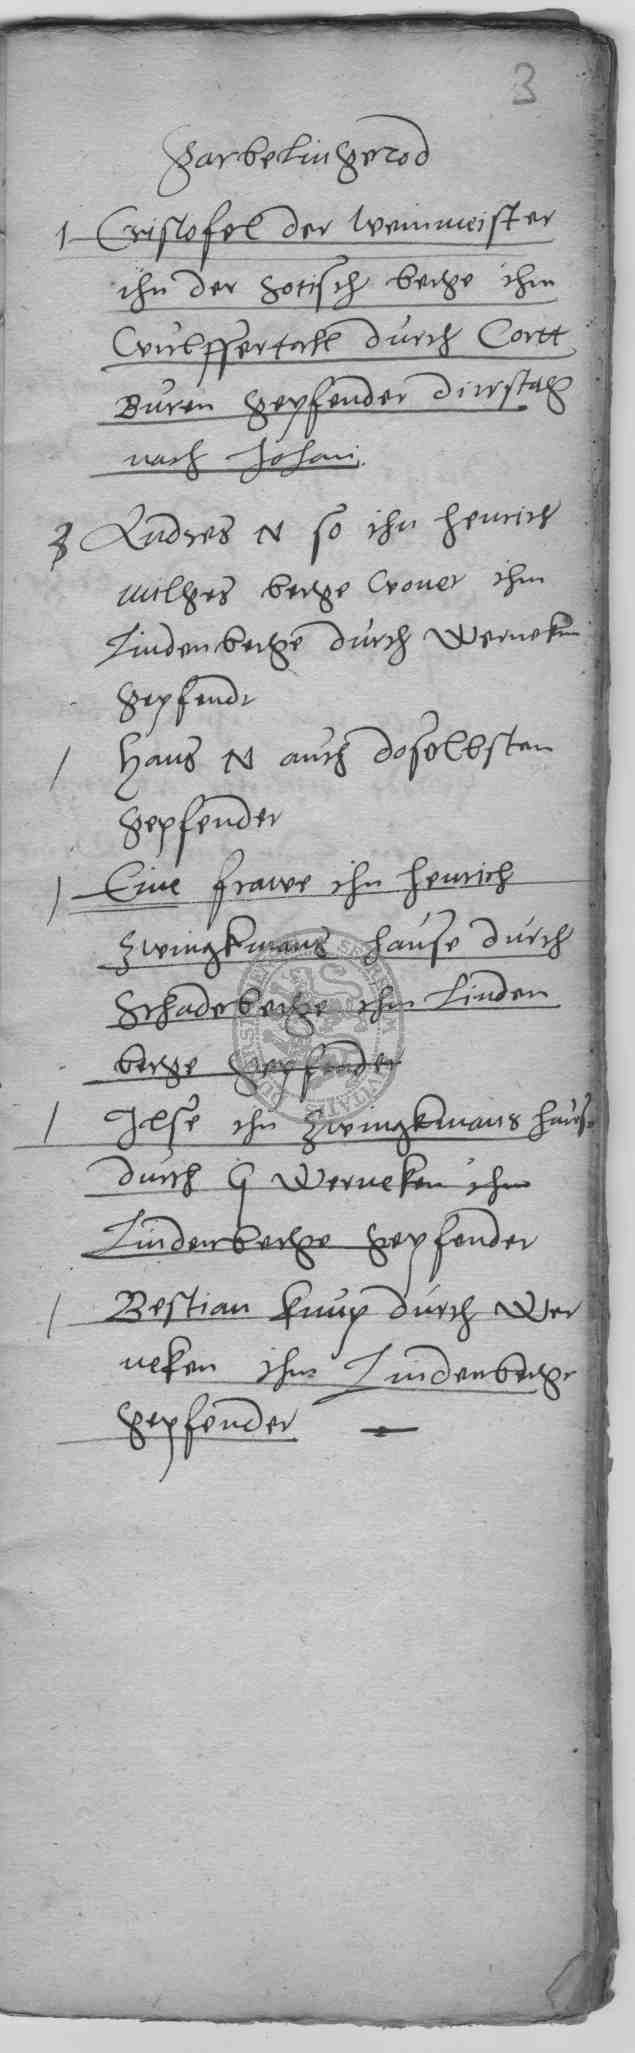 3
Garbelingerod
1 Cristofel der weinmeister
ihn der gotisch berge ihm
durch Cortt
Buren gepfender dinstag
nach Johani.
3 Andres N so ihn Henrich
Milges berge wonet ihm
Lindenberge durch Werneken
gepfendt
1 Hans N auch doselbsten
gepfender
1 Eine frawe ihn Henrich
Zwingkmans hause durch
Schadeberge ihm Linden
berge gepfender
1 Ilse ihn Zwingkmans hause
durch G Werneken ihm
Lindenberge gepfender
1 Bestian Knup durch Wer
neken ihm Lindenberge
gepfender